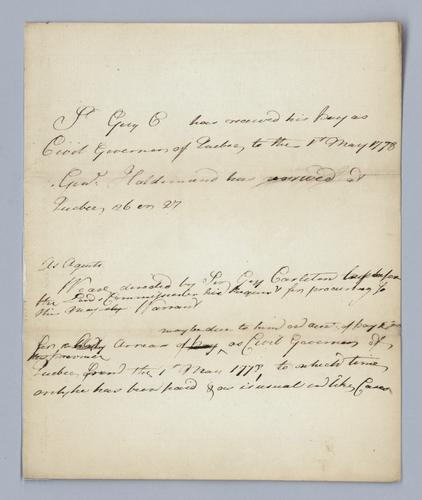 Sr. Guy C has received his pay as
Civil Governor of Quebec, to the 1st May 1778
Genl. Haldimand has arrived at
Quebec, 26 or 27
As Agents
We are directed by Sir Guy Carleton to lay before
the Lords Commissioners his Request for procuring
His Majesty Warrant
may be due to him on acct. of pay
for Arrears of pay as Civil Governor of
the province
Quebec from the 1st May 1778, to which time
only he has been paid & as is usual in like Cases